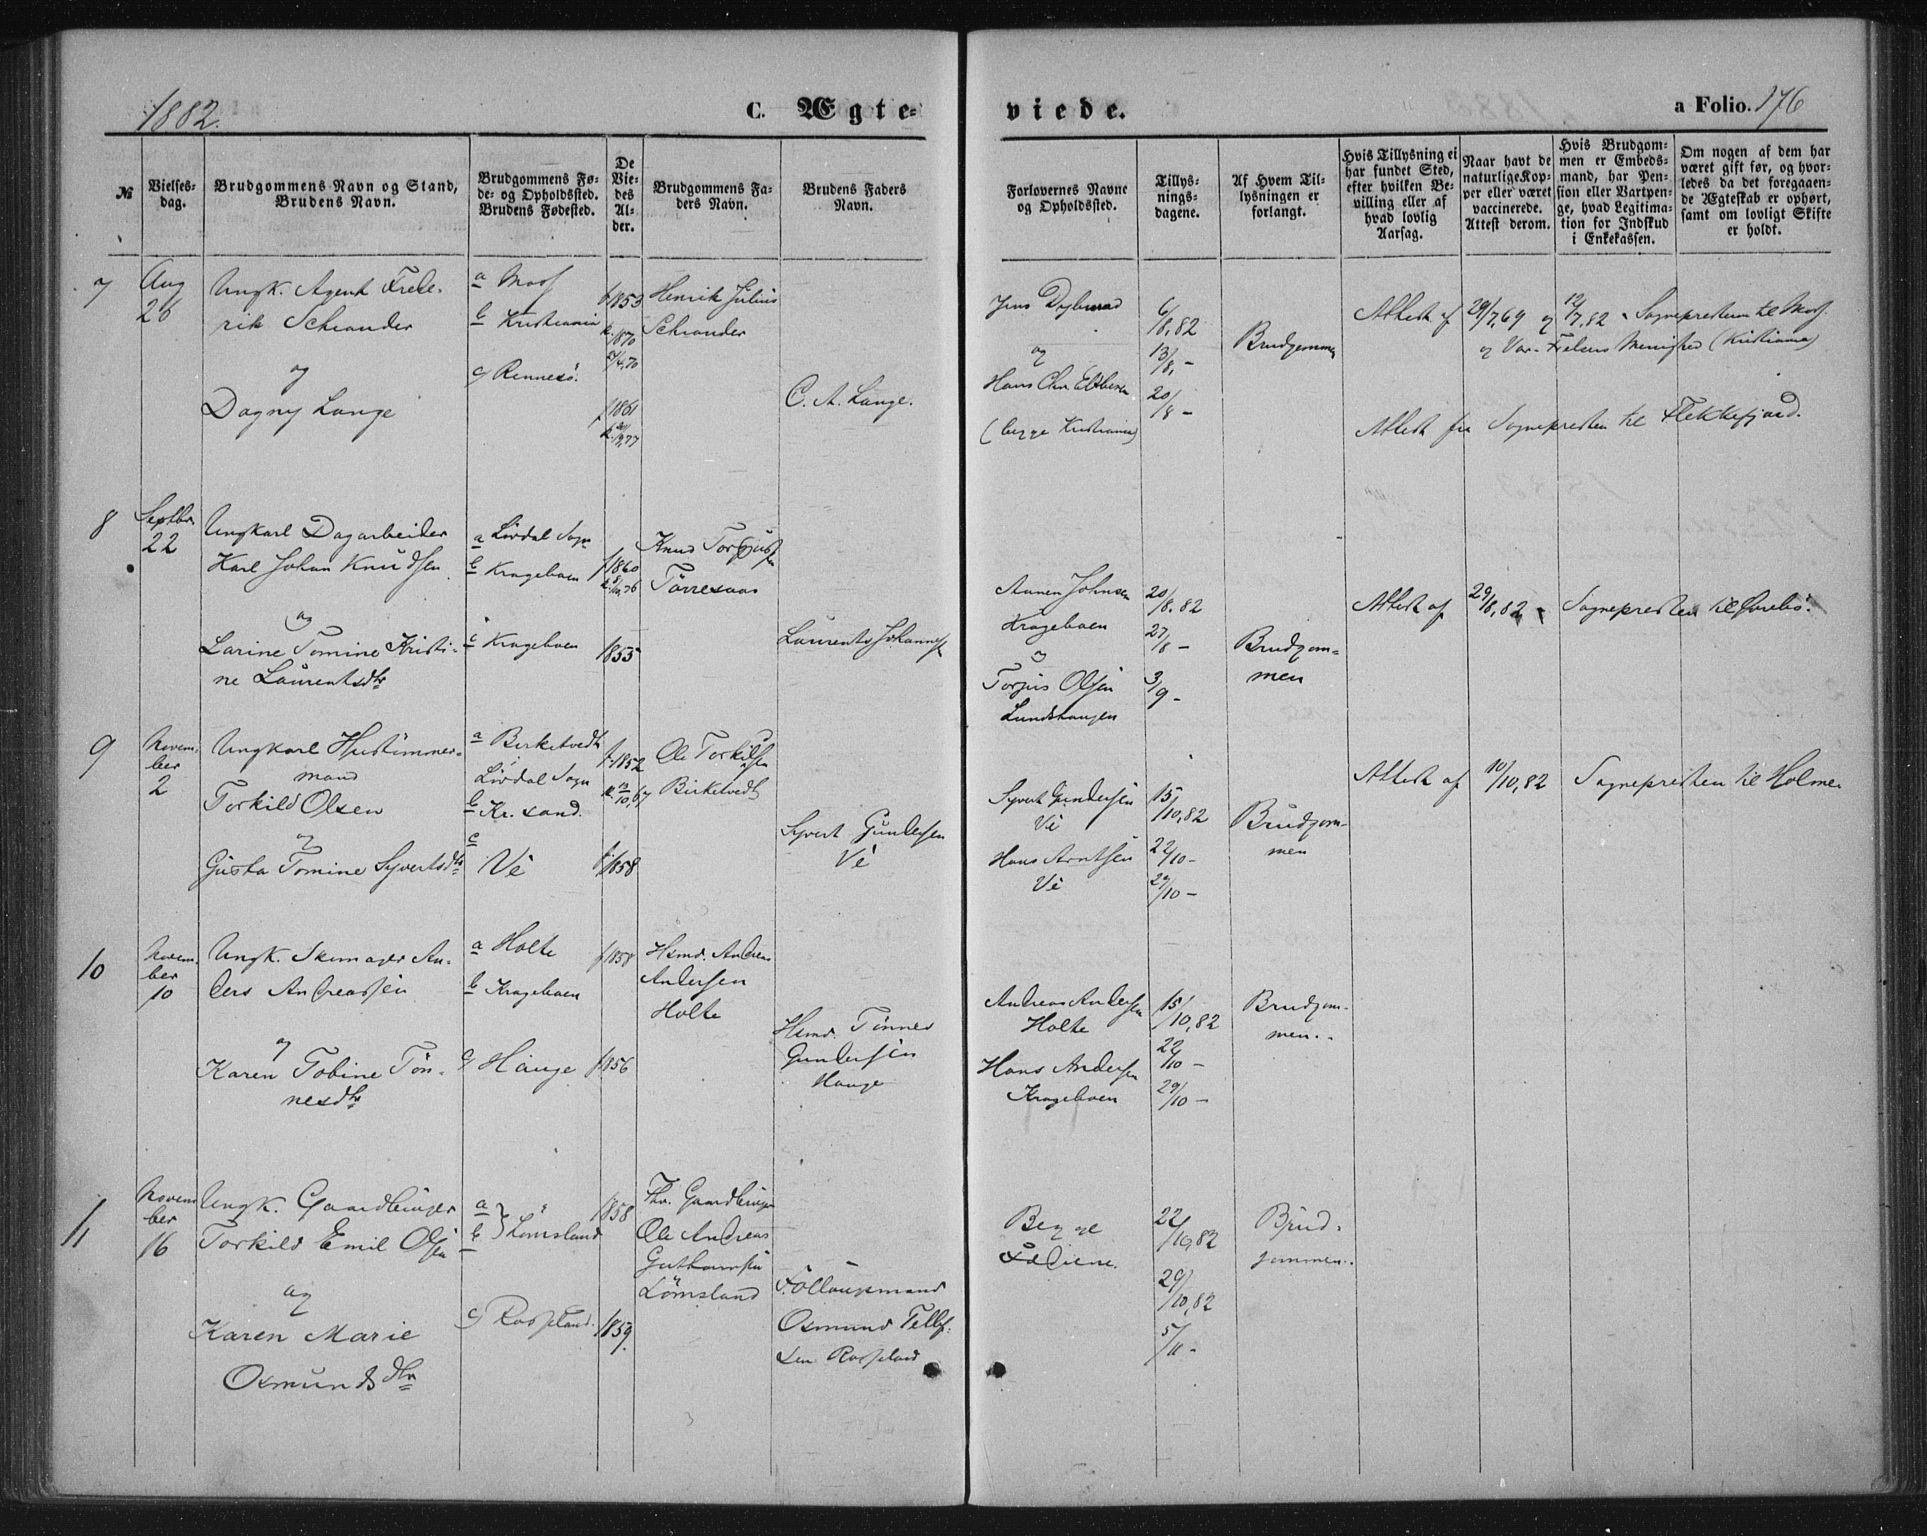 1882.
C. Ægte-
viede.
a Folio. 176
№
Vielses-
dag.
Brudgommens Navn og Stand,
Brudens Navn.
Brudgommens Fø-
de- og Opholdssted.
Brudens Fødested.
De
Vie-
des
Al-
der.
Brudgommens Fa-
ders Navn.
Brudens Faders
Navn.
Forlovernes Navne
og Opholdssted.
Tillys-
nings-
dagene.
Af Hvem Til-
lysningen er
forlangt.
Hvis Tillysning ei
har fundet Sted,
efter hvilken Be-
villing eller af
hvad lovlig
Aarsag.
Naar havt de
naturlige Kop-
per eller været
vaccinerede.
Attest derom.
Hvis Brudgom-
men er Embeds-
mand, har Pen-
sion eller Vartpen-
ge, hvad Legitima-
tion for Indskud
i Enkekassen.
Om nogen af dem har
været gift før, og hvor-
ledes da det foregaaen-
de Ægteskab er ophørt,
samt om lovligt Skifte
er holdt.
7
Aug
26
Ungk. Agent Frede-
rik Schrander
og
Dagny Lange
a Moss
b Kristiania
c Rennesö.
f 1853
1870
f 1861
Henrik Julius
Schrander
C. A. Lange.
Jens
og
Hans Chr
(begge Kristiania)
6/8, 82
13/8, -
20/8 -
Brudgommen
Attest af 29/7, 69 og 12/7, 82 - Sognepresten til Moss.
og Vor-Frelsers Menighed (Kristiania)
Attest fra Sognepresten til Flekkefjord.
8
Septbr.
22
Ungkarl Dagarbeider
Karl Johan Knudsen
og
Larine Tomine Kristi-
ne Laurentsdtr
a Lövdal Sogn
b Krageboen
c Krageboen
f 1860
1855
Knud
Laurents Johannes
Johnsen
Krageboen
og
Torjus Olsen
Lundshaugen
20/8. 82
27/8 -
3/9 -
Brudgom=
men
Attest af 29/8, 82 Sognepresten til
9
Novem-
ber
2
Ungkarl Hustömmer-
mand
Torkild Olsen
og
Gusta Tomine Syvertsdtr
a Birketvedt
Lövdal Sogn
b Kr.sand.
c
Ve
f. 1852
f 1858
Ole Torkilsen
Birketvedt
Syvert Gundersen
Ve
Syvert Gundersen
Ve
Hans Arntsen
Ve
15/10, 82
22/10 -
29/10 -
Brudgom-
men
Attest af 10/10, 82 Sognepresten til Holme
10
Novem-
ber
10
Ungk. Skomager An-
ders Andreassen
og
Karen Tobine Tön-
nesdtr
a Holte
b Krageboen
c Hauge
f 1858
f 1856
Hsmd. Andreas
Andersen
Holte
Hsmd. Tönnes
Gundersen
Hauge
Andreas Andersen
Holte
Hans Andersen
Krageboen
15/10, 82
22/10 -
29/10 -
Brudgom-
men.
11
Novem-
ber
16
Ungk. Gaardbruger
Torkild Emil Olsen
og
Karen Marie
Osmundsdtr
a
b } Lömsland
c Rosseland.
1858
1859.
Gaardbruger
Ole Andreas
Guthormsen
Lömsland
Föllaugsmand
Osmund Tellef-
sen Rosseland
Begge
Fædrene.
22/10, 82
29/10, 82
5/11 -
Brud-
gommen.